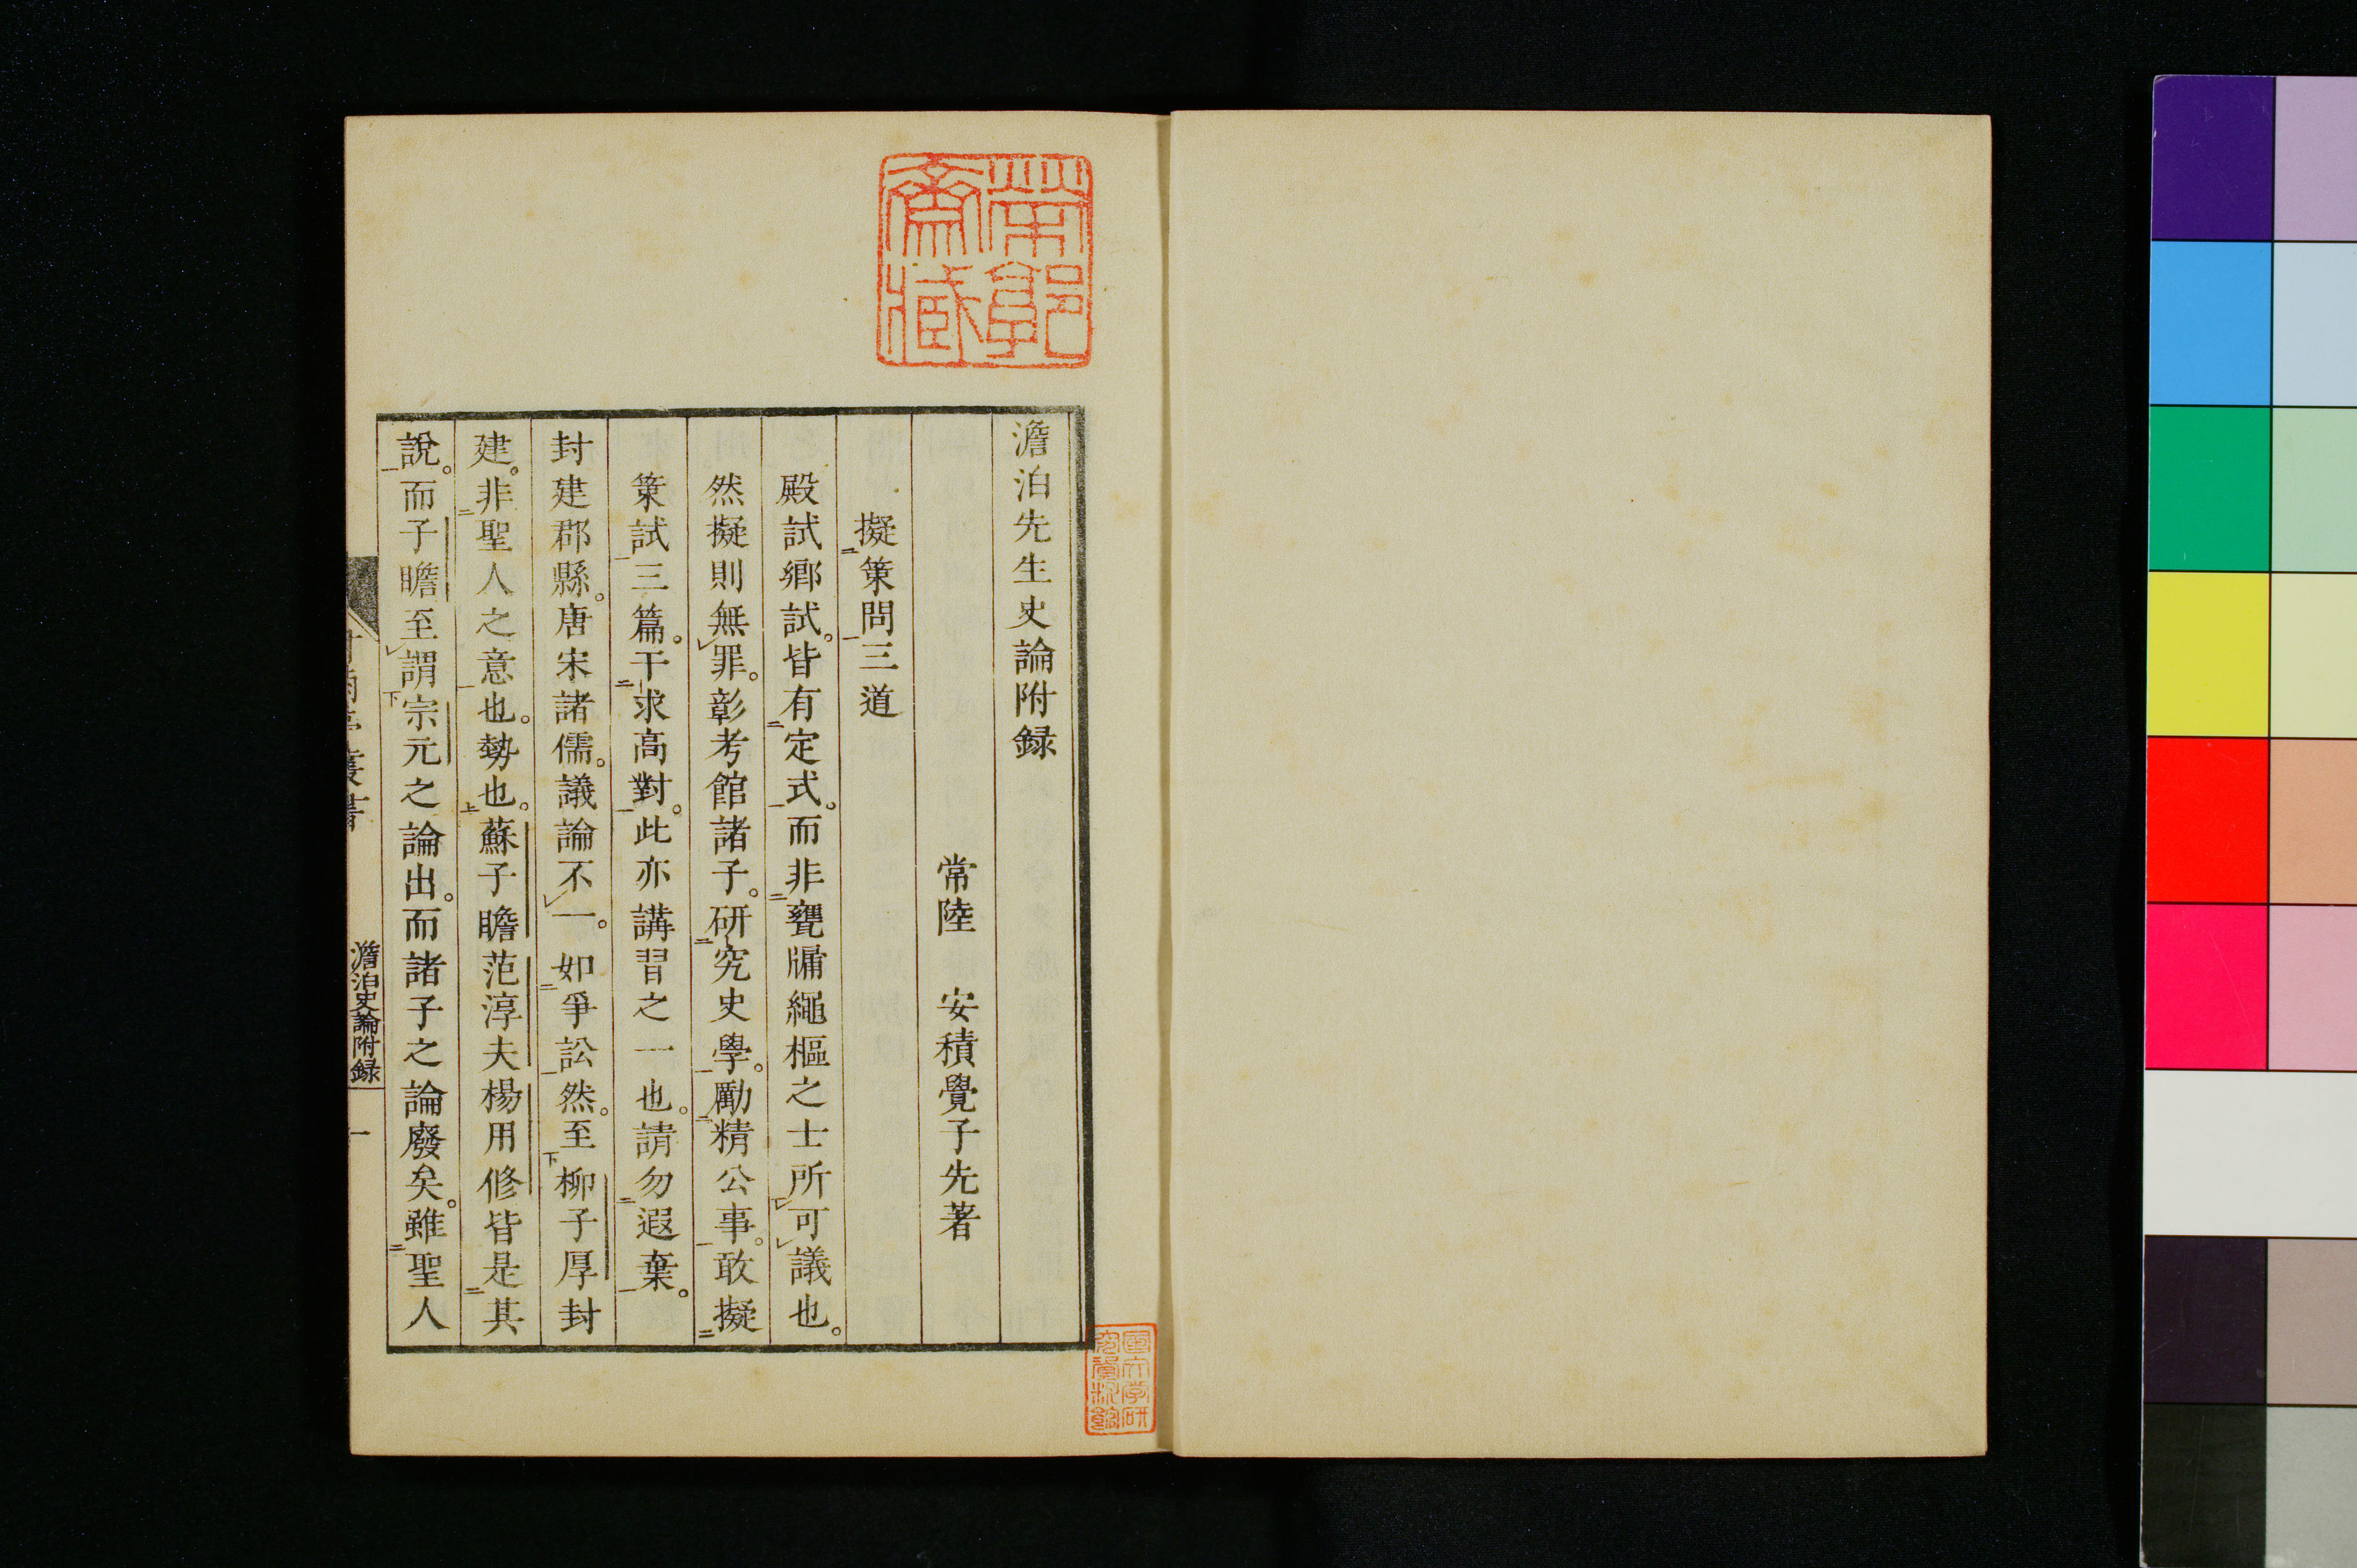 澹泊先生史論附録
常陸　安積覺子先著
擬策問三道
殿試鄉試。皆有定式。而非甕牖繩樞之士所可議也。
然擬則無罪。彰考館諸子。研究史學。勵精公事。敢擬
策試三篇。干求高對。此亦講習之一也。請勿遐棄。
封建郡縣。唐宋諸儒。議論不一。如爭訟然。至柳子厚封
建。非聖人之意也。勢也。蘇子瞻范淳夫楊用修皆是其
說。而子瞻至謂宗元之論出。而諸子之論廢矣。雖聖人
澹泊史論附録
一
國文学研
究資料館